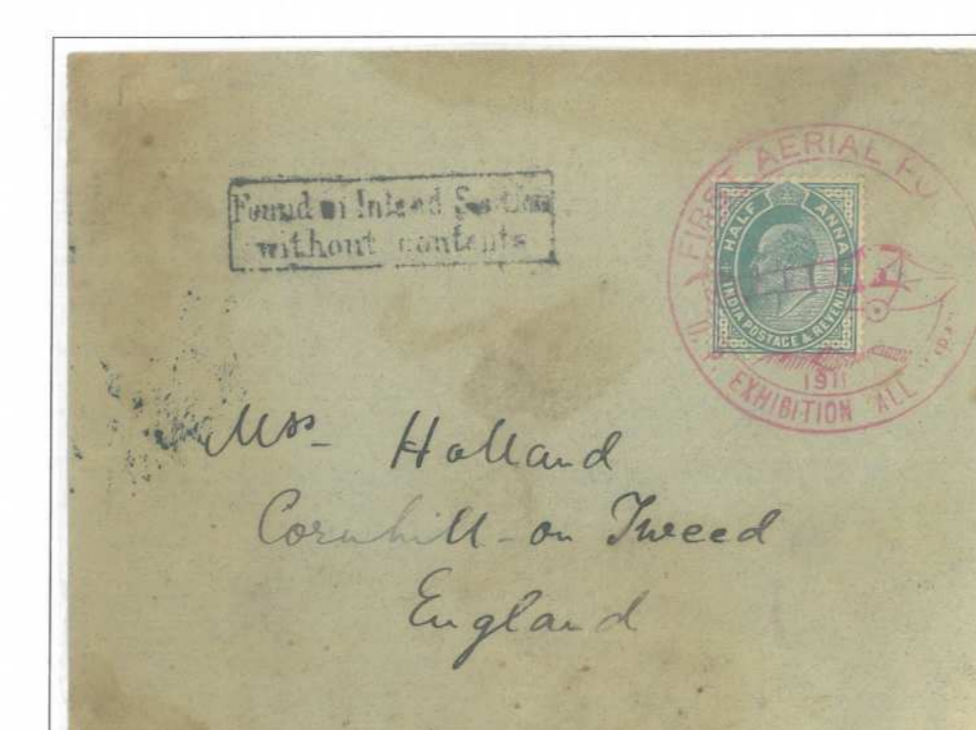 Found in Inland Section
without contents
FIRST AERIAL PO
HALF ANNA
INDIA POSTAGE & REVENUE
1911
EXHIBITION ALL
Mrs Holland
Cornhill-on Tweed
England